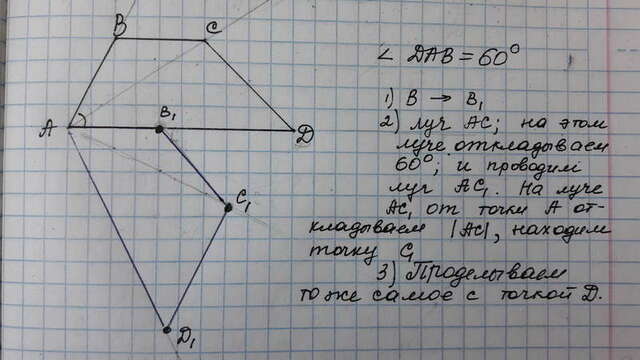 B
C
∠ DAB = 60°
B₁
A
D
1) B → B₁
2) луч AC; на этом
луче откладываем
60°; и проводим
луч AC₁. На луче
AC₁ от точки A от-
C₁
кладываем |AC|, находим
точку C₁
3) Проделываем
то же самое с точкой D.
D₁